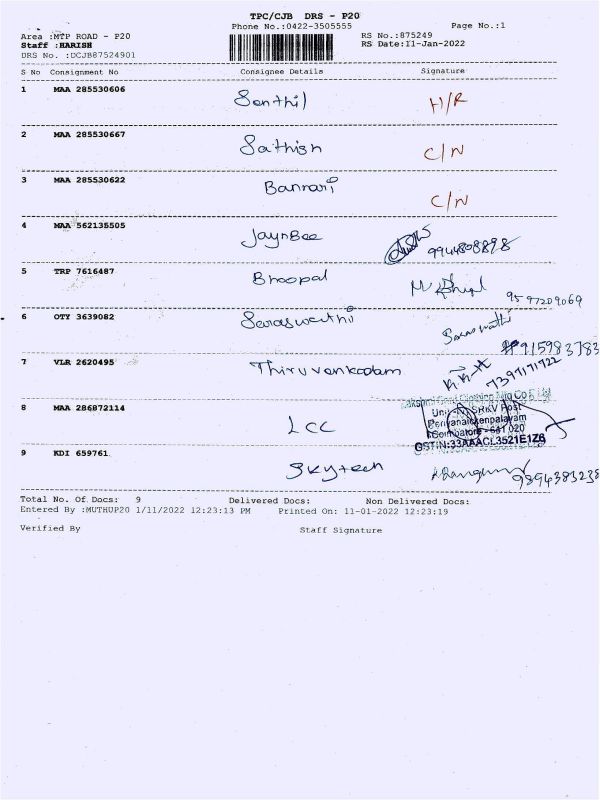 TPC/CJB DRS - P20
Phone No.:0422-3505555 Page No.:1
Area :MTP ROAD - P20 RS No.:875249
Staff :HARISH RS Date:11-Jan-2022
DRS No. :DCJB87524901
S No Consignment No Consignee Details Signature
1 MAA 285530606 Senthil H/R
2 MAA 285530667 Sathish C/N
3 MAA 285530622 Bannari C/N
4 MAA 562135505 JaynBee 9944808898
5 TRP 7616487 Bhoopal 9597209069
6 OTY 3639082 Saraswathi Saraswathi
915983783
7 VLR 2620495 Thiruvenkadam 7397171722
8 MAA 286872114 LCC
SRKV Post
Periyanaickenpalayam
Coimbatore - 641 020
GSTIN:33AAACL3521E1Z6
9 KDI 659761 Skytech 9894383238
Total No. Of Docs: 9 Delivered Docs: Non Delivered Docs:
Entered By :MUTHUP20 1/11/2022 12:23:13 PM Printed On: 11-01-2022 12:23:19
Verified By Staff Signature